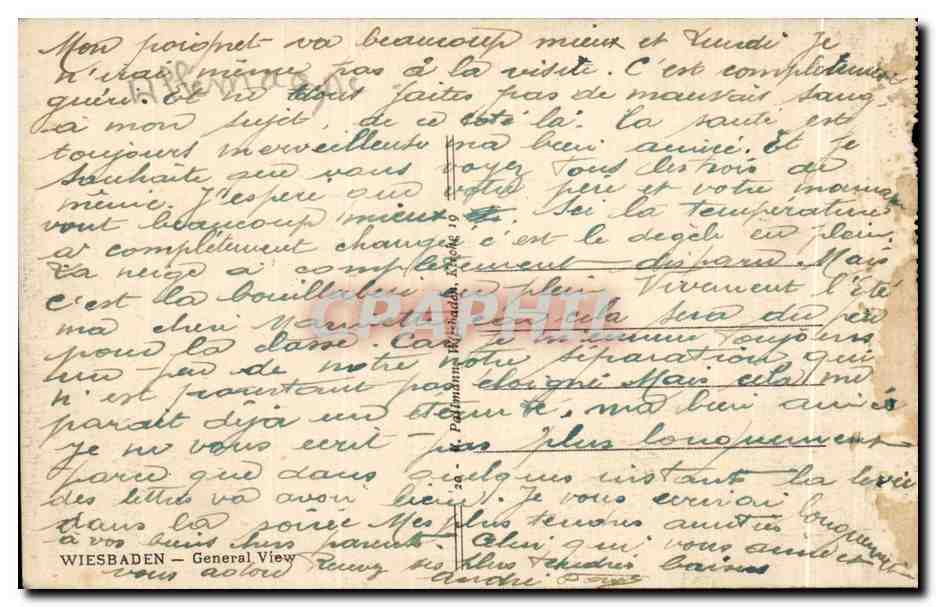 Mon poignet va beaucoup mieux et Lundi je
n'irai même pas à la visite. C'est complètement
guéri. Et ne vous faites pas de mauvais sang
à mon sujet, de ce coté là. La santé est
toujours merveilleuse ma bien aimée. Et je
souhaite que vous voyez tous les trois de
même. J'espere que votre père et votre maman
vont beaucoup mieux. Ici la température
a complètement changée c'est le degèle en plein
La neige à complètement disparu. Mais
c'est la en plein Vivement l'Été
ma cher cela sera du peu
pour la classe. Car je toujours
un peu de notre séparation qui
n'est pourtant pas eloigné Mais cela me
parait déja une éternité, ma bien aimée
Je ne vous ecrit pas plus longuement
parce que dans quelques instants la levée
des lettres va avoir lieu. Je vous ecrirai longuement
dans la soirée Mes plus tendres amitiés
à vos biens chers parents. Celui qui vous aime et
vous adore Recevez ses plus tendres baisers
André
Allemagne
WIESBADEN — General View
29 - H. Paltmann, Wiesbaden, Kirchg 19
CPAPHIL